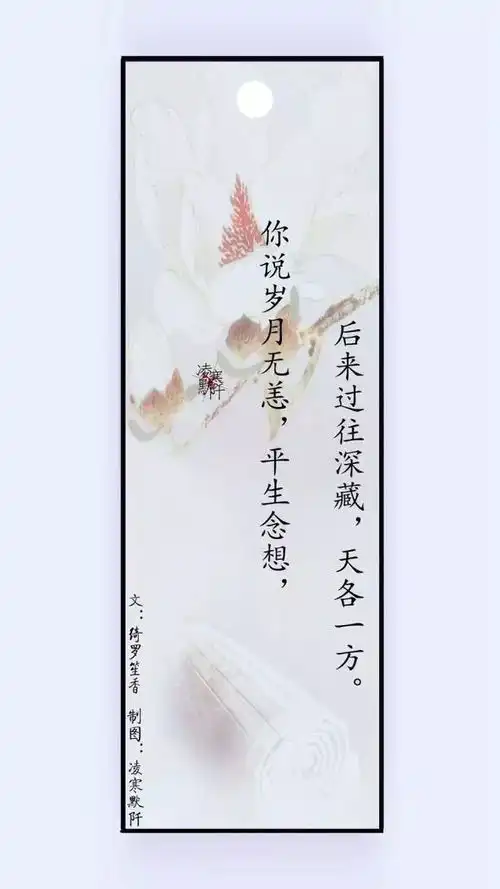 你说岁月无恙，平生念想，
后来过往深藏，天各一方。
凌寒默阡
文：绮罗笙香 制图：凌寒默阡